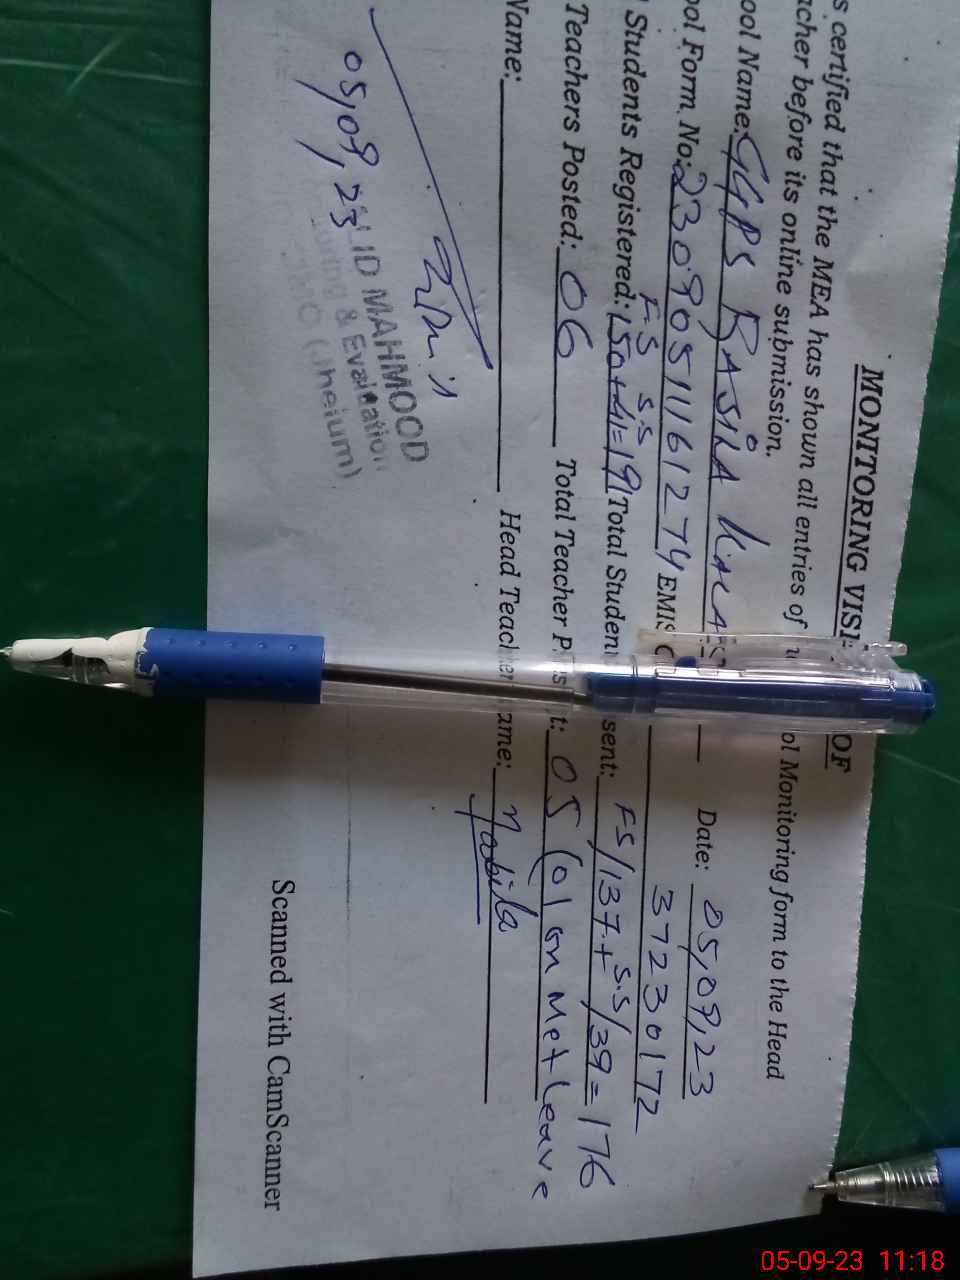 MONITORING VISI OF
s certified that the MEA has shown all entries of ol Monitoring form to the Head
acher before its online submission.
ool Name: GGPS Date: 05,09,23
ool Form. No: 230905111612774 EMIS C 37230172
F.S S.S
Students Registered: 150+41=191 Total Studen sent: FS/137+S.S/39=176
Teachers Posted: 06 Total Teacher P s t: 05 (01 on Met Leave
Name: Head Teacher ame: Nabila
05,09,23
ID MAHMOOD
oring & Evaluation
(Jhelum)
Scanned with CamScanner
05-09-23 11:18